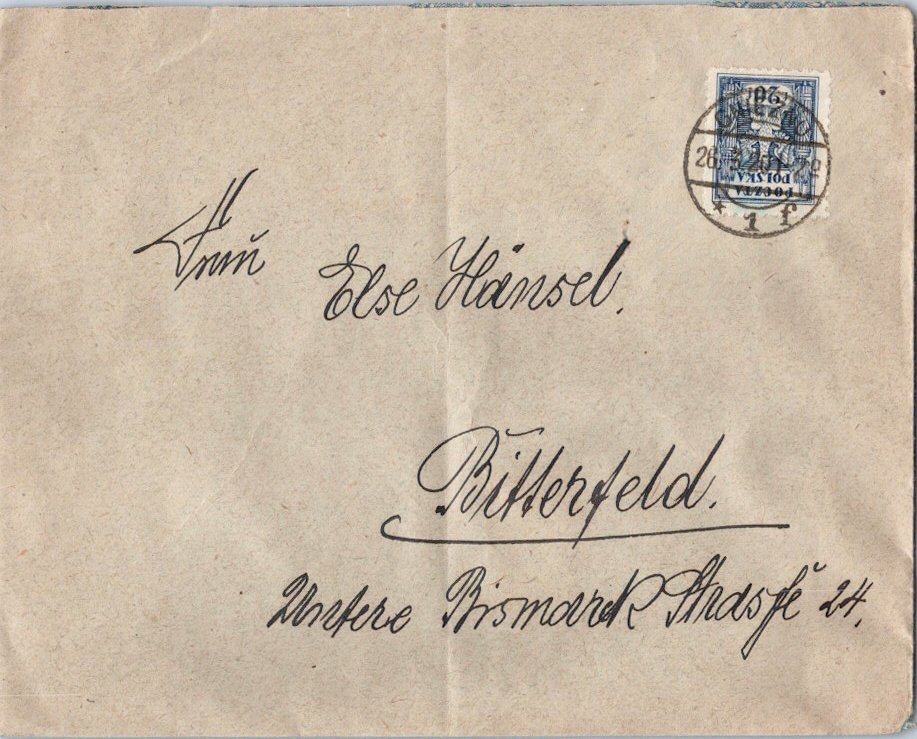 20
POCZTA
POLSKA
26.3.20
* 1 f
Frau
Else Hänsel.
Bitterfeld.
Untere Bismarck Straße 24.